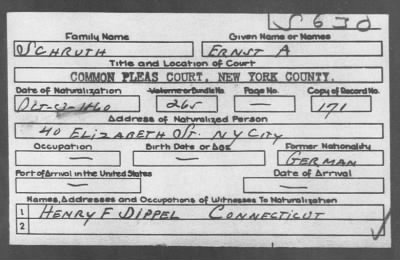 S630
Family Name Given Name or Names
SCHRUTH ERNST A
Title and Location of Court
COMMON PLEAS COURT, NEW YORK COUNTY.
Date of Naturalization Volume or Bundle No. Page No. Copy of Record No.
OCT-3-1860 265 — 171
Address of Naturalized Person
40 ELIZABETH ST. N Y CITY
Occupation Birth Date or Age Former Nationality
— — GERMAN
Port of Arrival in the United States Date of Arrival
— —
Names, Addresses and Occupations of Witnesses To Naturalization
1 HENRY F DIPPEL CONNECTICUT
2